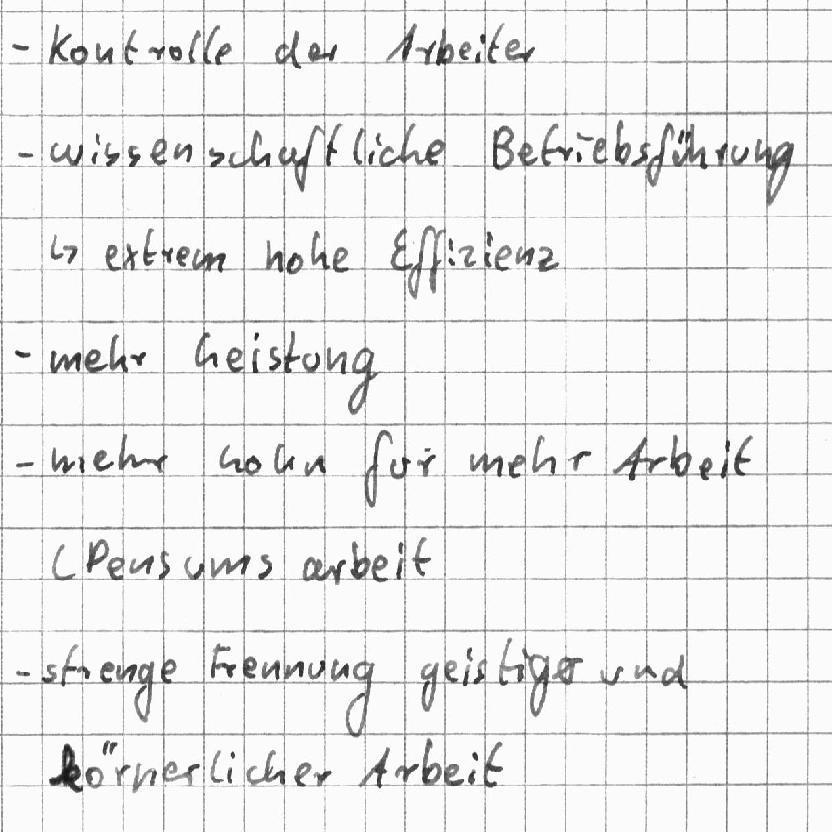 - Kontrolle der Arbeiter
- wissenschaftliche Betriebsführung
↳ extrem hohe Effizienz
- mehr Leistung
- mehr Lohn für mehr Arbeit
(Pensumsarbeit
- strenge Trennung geistiger und
körperlicher Arbeit